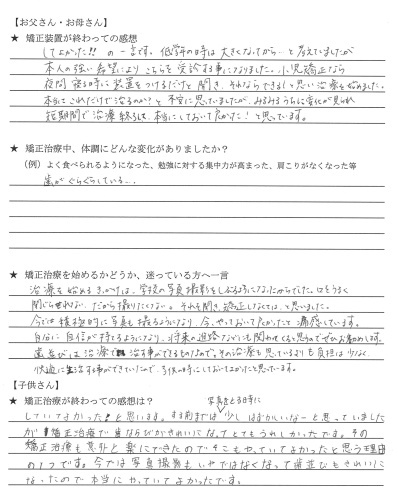 【お父さん・お母さん】
★ 矯正装置が終わっての感想
してよかった!! の一言です。低学年の時は大きくなってから…と考えていましたが
本人の強い希望により こちらを受診する事になりました。小児矯正なら
夜間寝る時に装置をつけるだけと聞き、それならできるしと思い治療を始めました。
本当にこれだけで治るのか?と不安に思っていましたが、みるみるうちに変化が見られ
短期間で治療終了して、本当にしておいて良かった!と思っています。
★ 矯正治療中、体調にどんな変化がありましたか?
(例)よく食べられるようになった、勉強に対する集中力が高まった、肩こりがなくなった等
歯がぐらぐらしている…。
★ 矯正治療を始めるかどうか、迷っている方へ一言
治療を始めるきっかけは、学校の写真撮影をしぶるようになったからでした。口をうまく
閉じられない、だから撮りたくない。それを聞き、矯正しなくては、と思いました。
今では積極的に写真も撮るようになり、今、やっておいてよかったと痛感しています。
自分に自信が持てるようになり、将来の進路などにも関わってくると思うのでぜひお勧めします。
歯並びは治療で治す事ができるものなので、その治療も思っているよりも負担は少なく、
快適に生活する事ができていたので、子供の時にしておいてよかったと思っています。
【子供さん】
★ 矯正治療が終わっての感想は?
写真をとる時に
していてよかった!と思います。する前までは少しはずかしいなーと思っていました
が矯正治療で歯ならびがきれいになってとてもうれしかったです。その
矯正治療も意外と楽にできたのでそこもやっていてよかったと思う理由
の1つです。今では写真撮影もいやではなくなって歯並びもきれいに
なったので本当にやっていてよかったです。